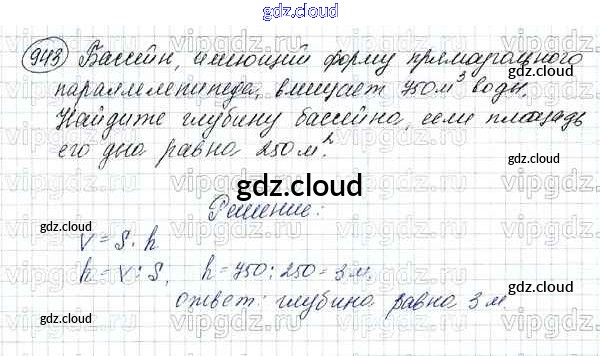 gdz.cloud
943 Бассейн, имеющий форму прямоугольного
параллелепипеда, вмещает 750м³ воды.
Найдите глубину бассейна, если площадь
его дна равна 250м².
gdz.cloud
Решение:
V = S · h
h = V : S, h = 750 : 250 = 3м,
ответ: глубина равна 3 м.